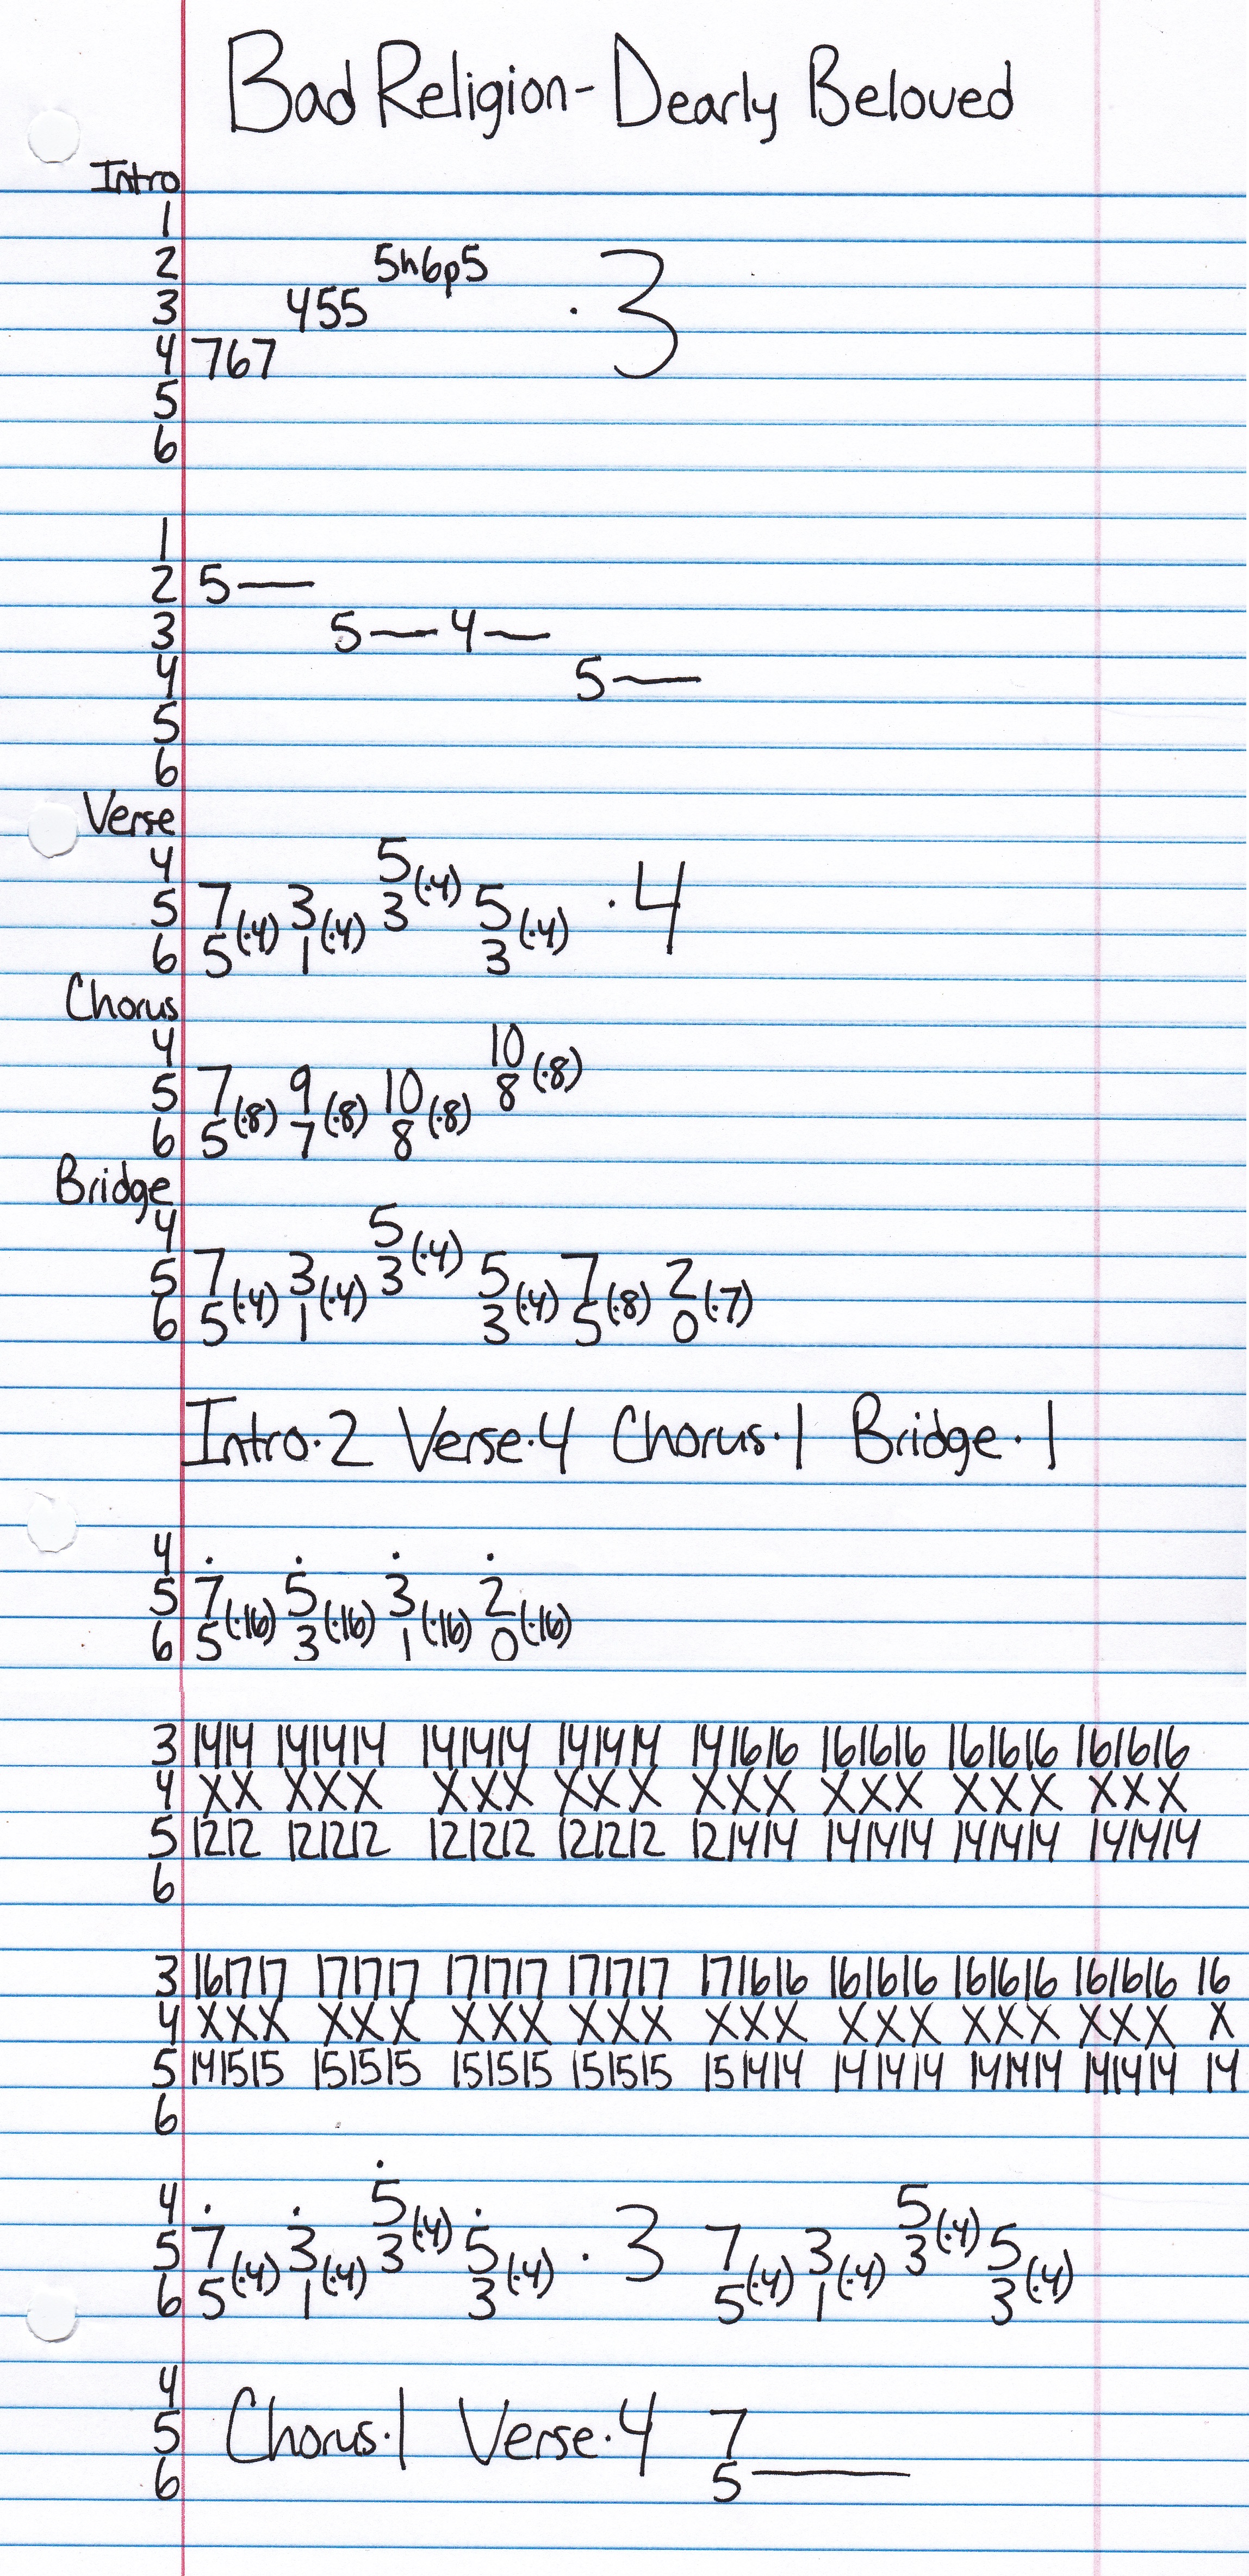 Bad Religion - Dearly Beloved
Intro
1
2 5h6p5
3 455 · 3
4 767
5
6
1
2 5—
3 5—4—
4 5—
5
6
Verse
4 5
5 7(·4) 3(·4) 3(·4) 5(·4) · 4
6 5 1 3
Chorus
4 10
5 7(·8) 9(·8) 10(·8) 8(·8)
6 5 7 8
Bridge
4 5
5 7(·4) 3(·4) 3(·4) 5(·4) 7(·8) 2(·7)
6 5 1 3 5 0
Intro·2 Verse·4 Chorus·1 Bridge·1
4 . . . .
5 7(·16) 5(·16) 3(·16) 2(·16)
6 5 3 1 0
3 1414 141414 141414 141414 141616 161616 161616 161616
4 XX XXX XXX XXX XXX XXX XXX XXX
5 1212 121212 121212 121212 121414 141414 141414 141414
6
3 161717 171717 171717 171717 171616 161616 161616 161616 16
4 XXX XXX XXX XXX XXX XXX XXX XXX X
5 141515 151515 151515 151515 151414 141414 141414 141414 14
6
4 . . 5 . 5
5 7(·4) 3(·4) 3(·4) 5(·4) · 3 7(·4) 3(·4) 3(·4) 5(·4)
6 5 1 3 5 1 3
4
5 Chorus·1 Verse·4 7
6 5—